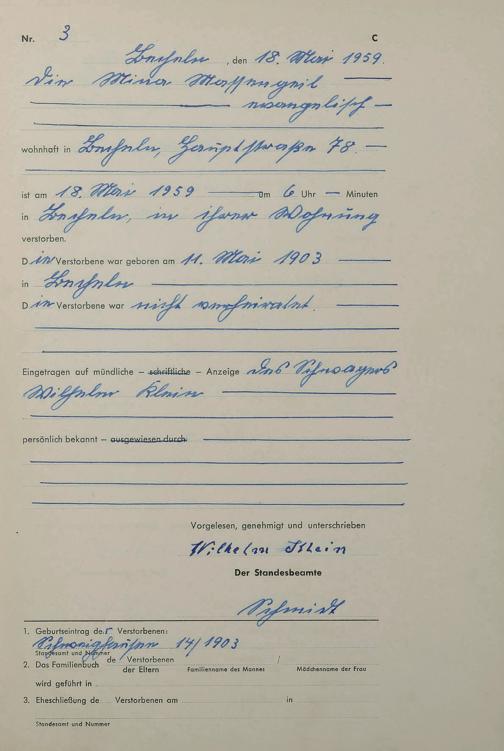 Nr. 3 C
Becheln, den 18. Mai 1959.
Die Mina Massengeil
evangelisch
wohnhaft in Becheln, Hauptstraße 78.
ist am 18. Mai 1959 um 6 Uhr — Minuten
in Becheln, in ihrer Wohnung
verstorben.
Die Verstorbene war geboren am 11. Mai 1903
in Becheln
Die Verstorbene war nicht verheiratet.
Eingetragen auf mündliche – schriftliche – Anzeige des Schwagers
Wilhelm Klein
persönlich bekannt – ausgewiesen durch
Vorgelesen, genehmigt und unterschrieben
Wilhelm Klein
Der Standesbeamte
Schmidt
1. Geburtseintrag der Verstorbenen:
Schweighausen 14/1903
Standesamt und Nummer
2. Das Familienbuch de Verstorbenen /
der Eltern Familienname des Mannes Mädchenname der Frau
wird geführt in
3. Eheschließung de Verstorbenen am in
Standesamt und Nummer